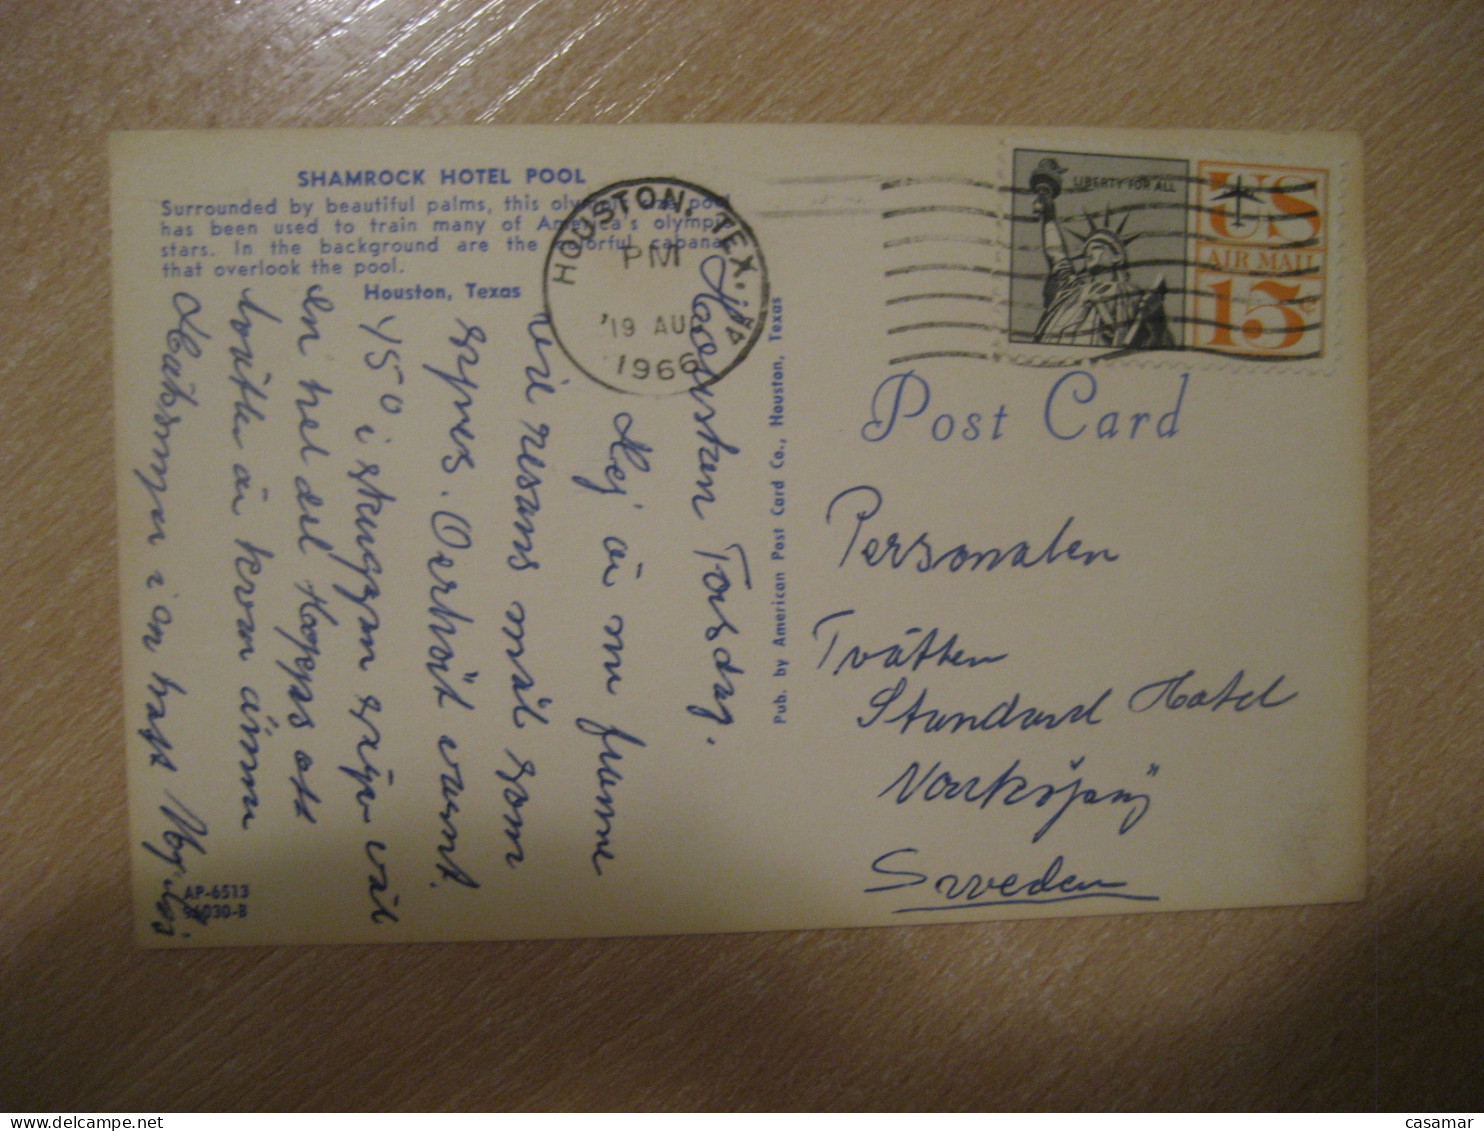 SHAMROCK HOTEL POOL
Surrounded by beautiful palms, this olympic size pool
has been used to train many of America's olympic
stars. In the background are the colorful cabanas
that overlook the pool.
Houston, Texas
HOUSTON, TEX.
PM
19 AUG
1966
LIBERTY FOR ALL
US
AIR MAIL
15¢
Post Card
Houston Torsdag.
Hej är nu framme
vid resans mål som
synes. Oerhört varmt.
450 i skuggan
en hel del Hoppas att
tvätta är kvar ännu
i en hast
Pub. by American Post Card Co., Houston, Texas
Personalen
Tvätten
Standard Hotel
Norrköping
Sweden
AP-6513
96030-B
casamar